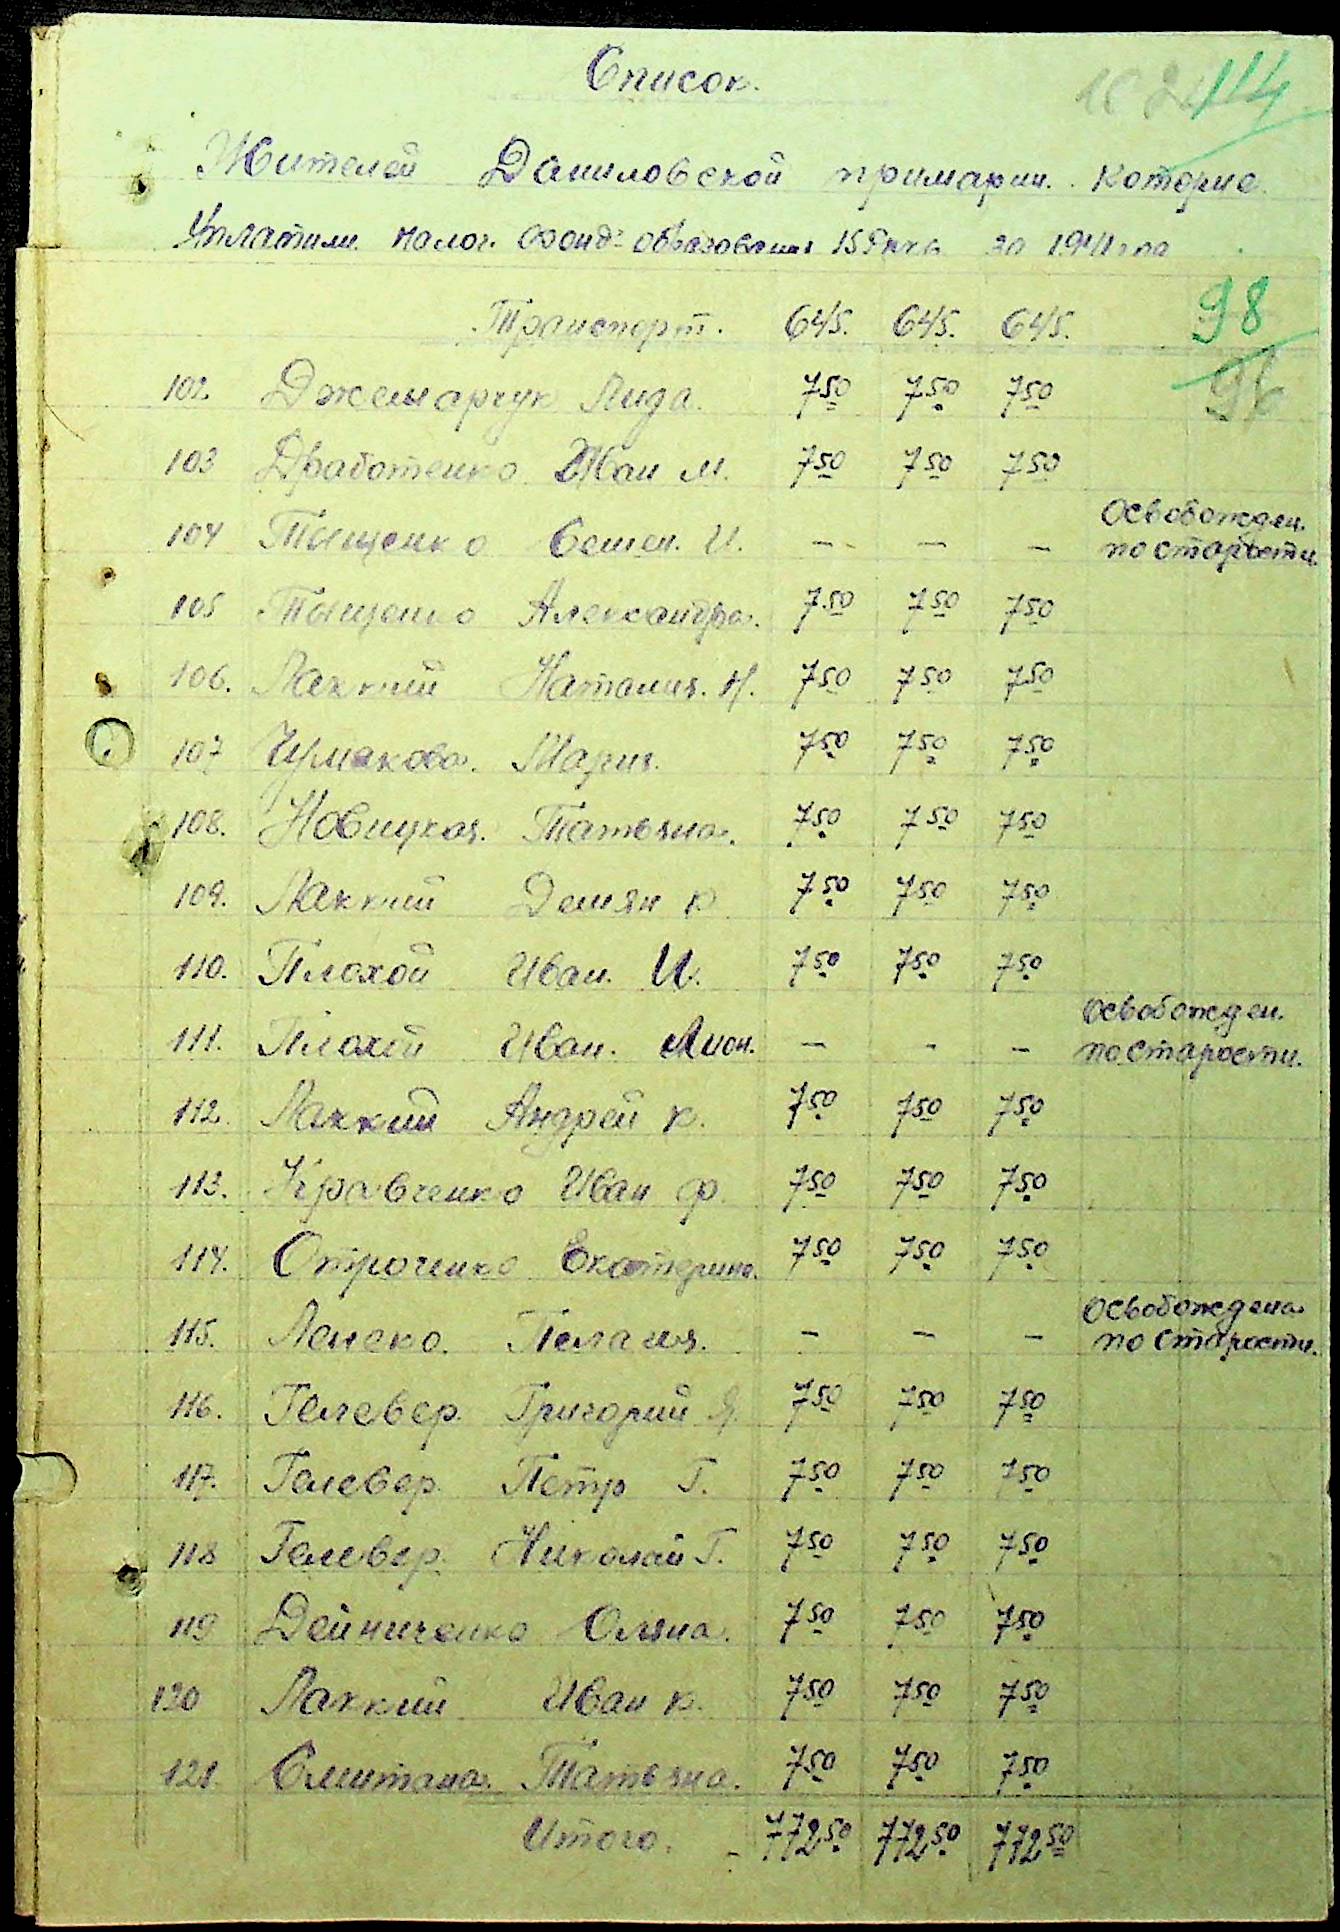 Список.
114
Жителей Даниловской примарии. которие
Уплатили налог. фонд образования 15 Рккв за 1941 год
98
96
Транспорт. 645. 645. 645.
102. Джемарчук Лида. 7 50 7 50 7 50
103 Дработенко Иван М. 7 50 7 50 7 50
104 Тыщенко Семен. И. — — — Освобожден. по старости.
105 Тыщенко Александра. 7 50 7 50 7 50
106. Легкий Наталия. Н. 7 50 7 50 7 50
107 Чумакова. Мария. 7 50 7 50 7 50
108. Новицкая. Татьяна. 7 50 7 50 7 50
109. Легкий Демян К 7 50 7 50 7 50
110. Плохой Иван. И. 7 50 7 50 7 50
111. Плохой Иван. Лион. — — — Освобожден. по старости.
112. Легкий Андрей К. 7 50 7 50 7 50
113. Кравченко Иван Ф. 7 50 7 50 7 50
114. Отроченко Екатерина. 7 50 7 50 7 50
115. Пелагия. — — — Освобождена по старости.
116. Гелевер. Григорий Я. 7 50 7 50 7 50
117. Гелевер. Петр Г. 7 50 7 50 7 50
118 Гелевер. Николай Г. 7 50 7 50 7 50
119 Дейниченко Оляна. 7 50 7 50 7 50
120 Легкий Иван К. 7 50 7 50 7 50
121. Смитана. Татьяна. 7 50 7 50 7 50
Итого. — 772 50 772 50 772 50